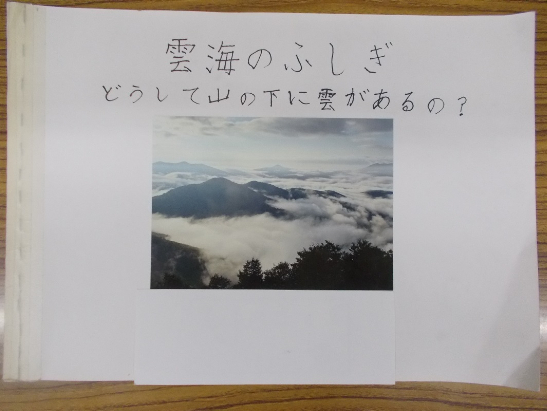 雲海のふしぎ
どうして山の下に雲があるの？